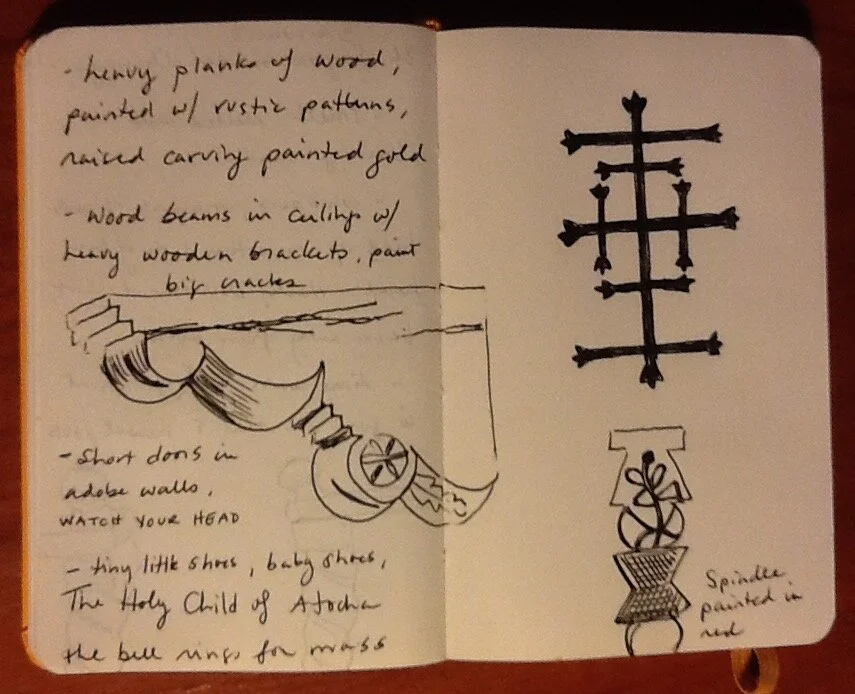 - heavy planks of wood,
painted w/ rustic patterns,
raised carving painted gold
- wood beams in ceilings w/
heavy wooden brackets, paint
big cracks
- Short doors in
adobe walls,
WATCH YOUR HEAD
- tiny little shoes, baby shoes,
The Holy Child of Atocha
the bell rings for mass
Spindle
painted in
red